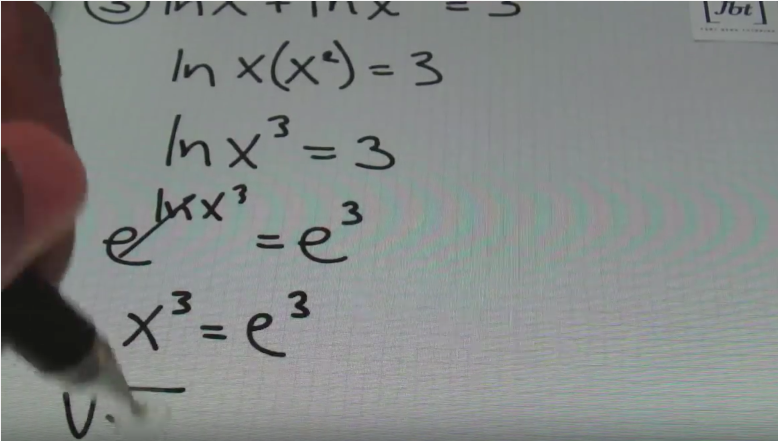 ③ ln x + ln x = 3
[Jbt]
ln x(x²) = 3
ln x³ = 3
e^(ln x³) = e³
x³ = e³